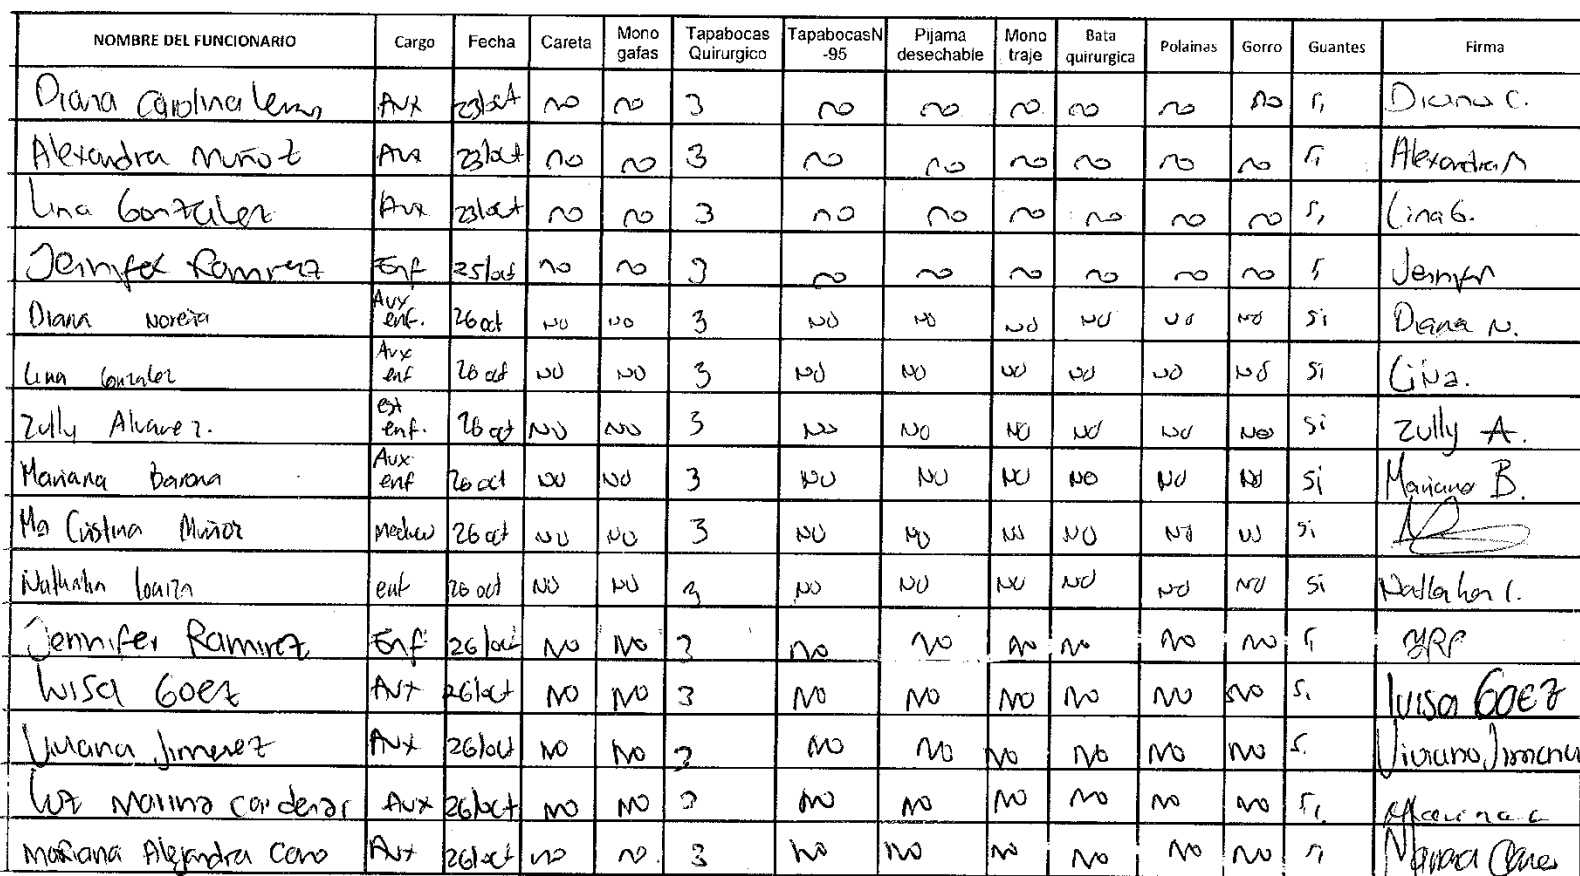 NOMBRE DEL FUNCIONARIO Cargo Fecha Careta Mono gafas Tapabocas Quirurgico TapabocasN -95 Pijama desechable Mono traje Bata quirurgica Polainas Gorro Guantes Firma
Diana Carolina Aux 23/oct no no 3 no no no no no no Si Diana C.
Alexandra Muñoz Aux 23/oct no no 3 no no no no no no Si Alexandra M
Lina Gonzalez Aux 23/oct no no 3 no no no no no no Si Lina G.
Jennifer Ramirez Enf 25/oct no no 3 no no no no no no Si Jennifer
Diana Noreña Aux enf. 26 oct no no 3 no no no no no no Si Diana N.
Lina Gonzalez Aux enf 26 oct no no 3 no no no no no no Si Lina.
Zully Alvarez. est enf. 26 oct no no 3 no no no no no no Si Zully A.
Mariana Barona Aux enf 26 oct no no 3 no no no no no no Si Mariana B.
Ma Cristina Muñoz Medico 26 oct no no 3 no no no no no no Si
Nathalia Loaiza enf 26 oct no no 3 no no no no no no Si
Jennifer Ramirez Enf 26/oct no no 3 no no no no no no Si JRP
Luisa Goez Aux 26/oct no no 3 no no no no no no Si Luisa Goez
Viviana Jimenez Aux 26/oct no no 3 no no no no no no Si Viviana Jimenez
Luz Marina Cardenas Aux 26/oct no no 3 no no no no no no Si Marina C
Mariana Alejandra Cano Aux 26/oct no no 3 no no no no no no Si Mariana Cano